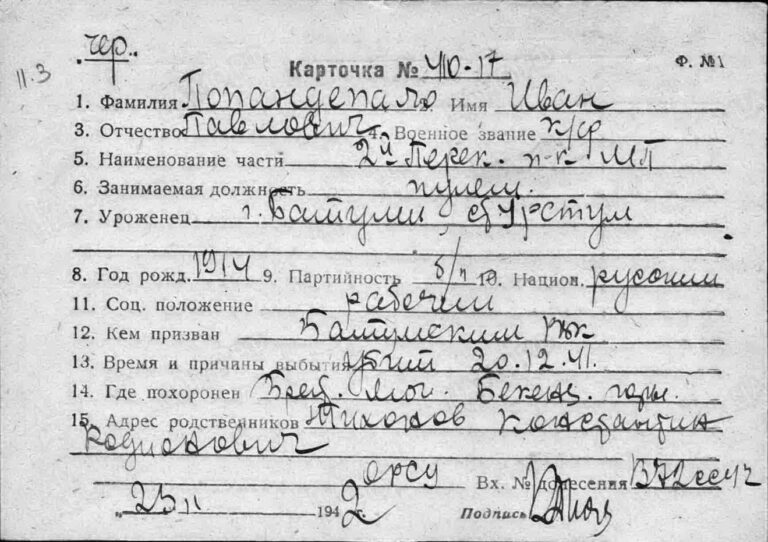 чер.
11.3
Карточка № 410-17
Ф. №1
1. Фамилия Попандепало 2. Имя Иван
3. Отчество Павлович 4. Военное звание к/ф
5. Наименование части 2й Перек. п-к МП
6. Занимаемая должность пулем.
7. Уроженец г. Батуми,
8. Год рожд. 1914 9. Партийность б/п 10. Национ. русский
11. Соц. положение рабочий
12. Кем призван Батумским РВК
13. Время и причины выбытия убит 20.12.41.
14. Где похоронен Брат. мог. Бекенд. горы.
15. Адрес родственников Тихонов Константин
Родионович
Вх. № донесения
„ 25 II 1942
Подпись